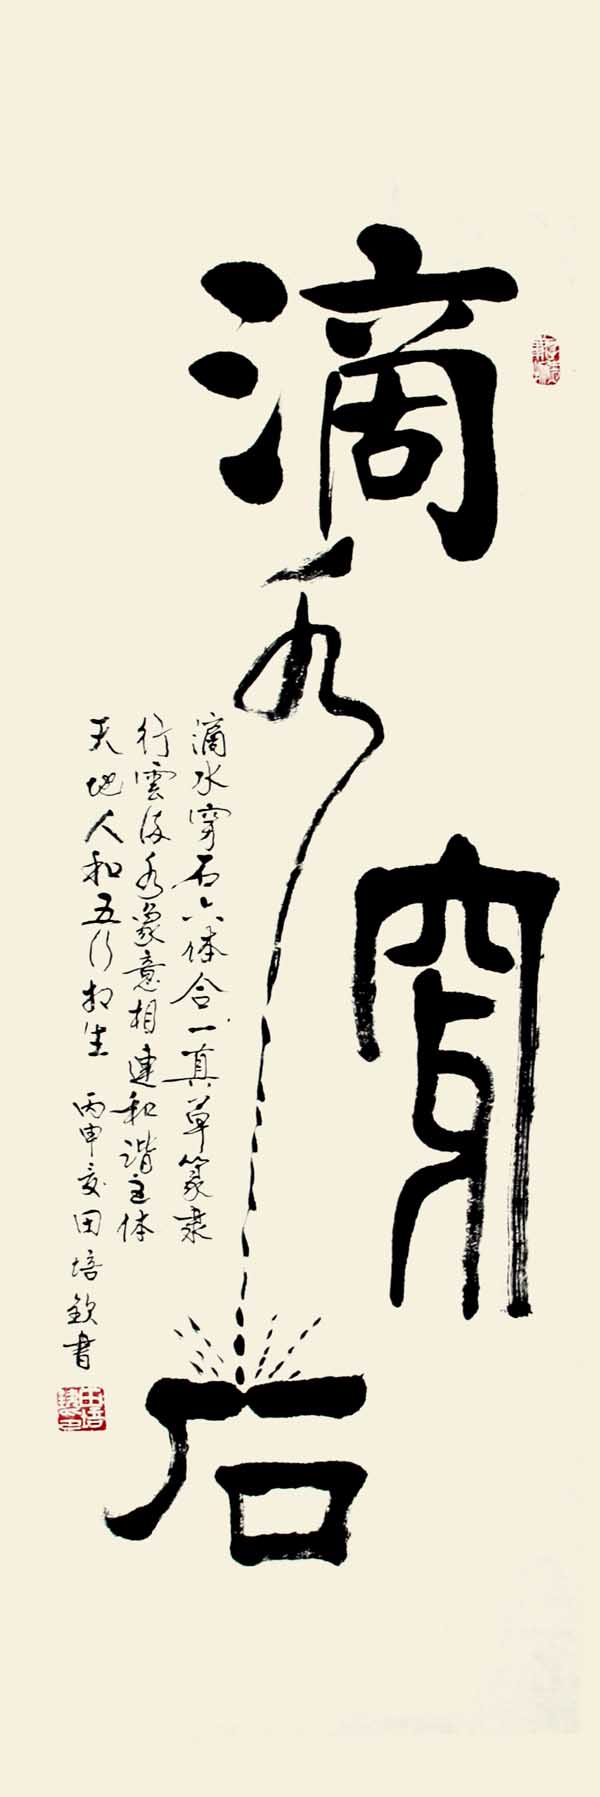 滴水穿石
滴水穿石六体合一真草篆隶
行雲流水象意相連和諧主体
天地人和五行相生 丙申夏田培欽書